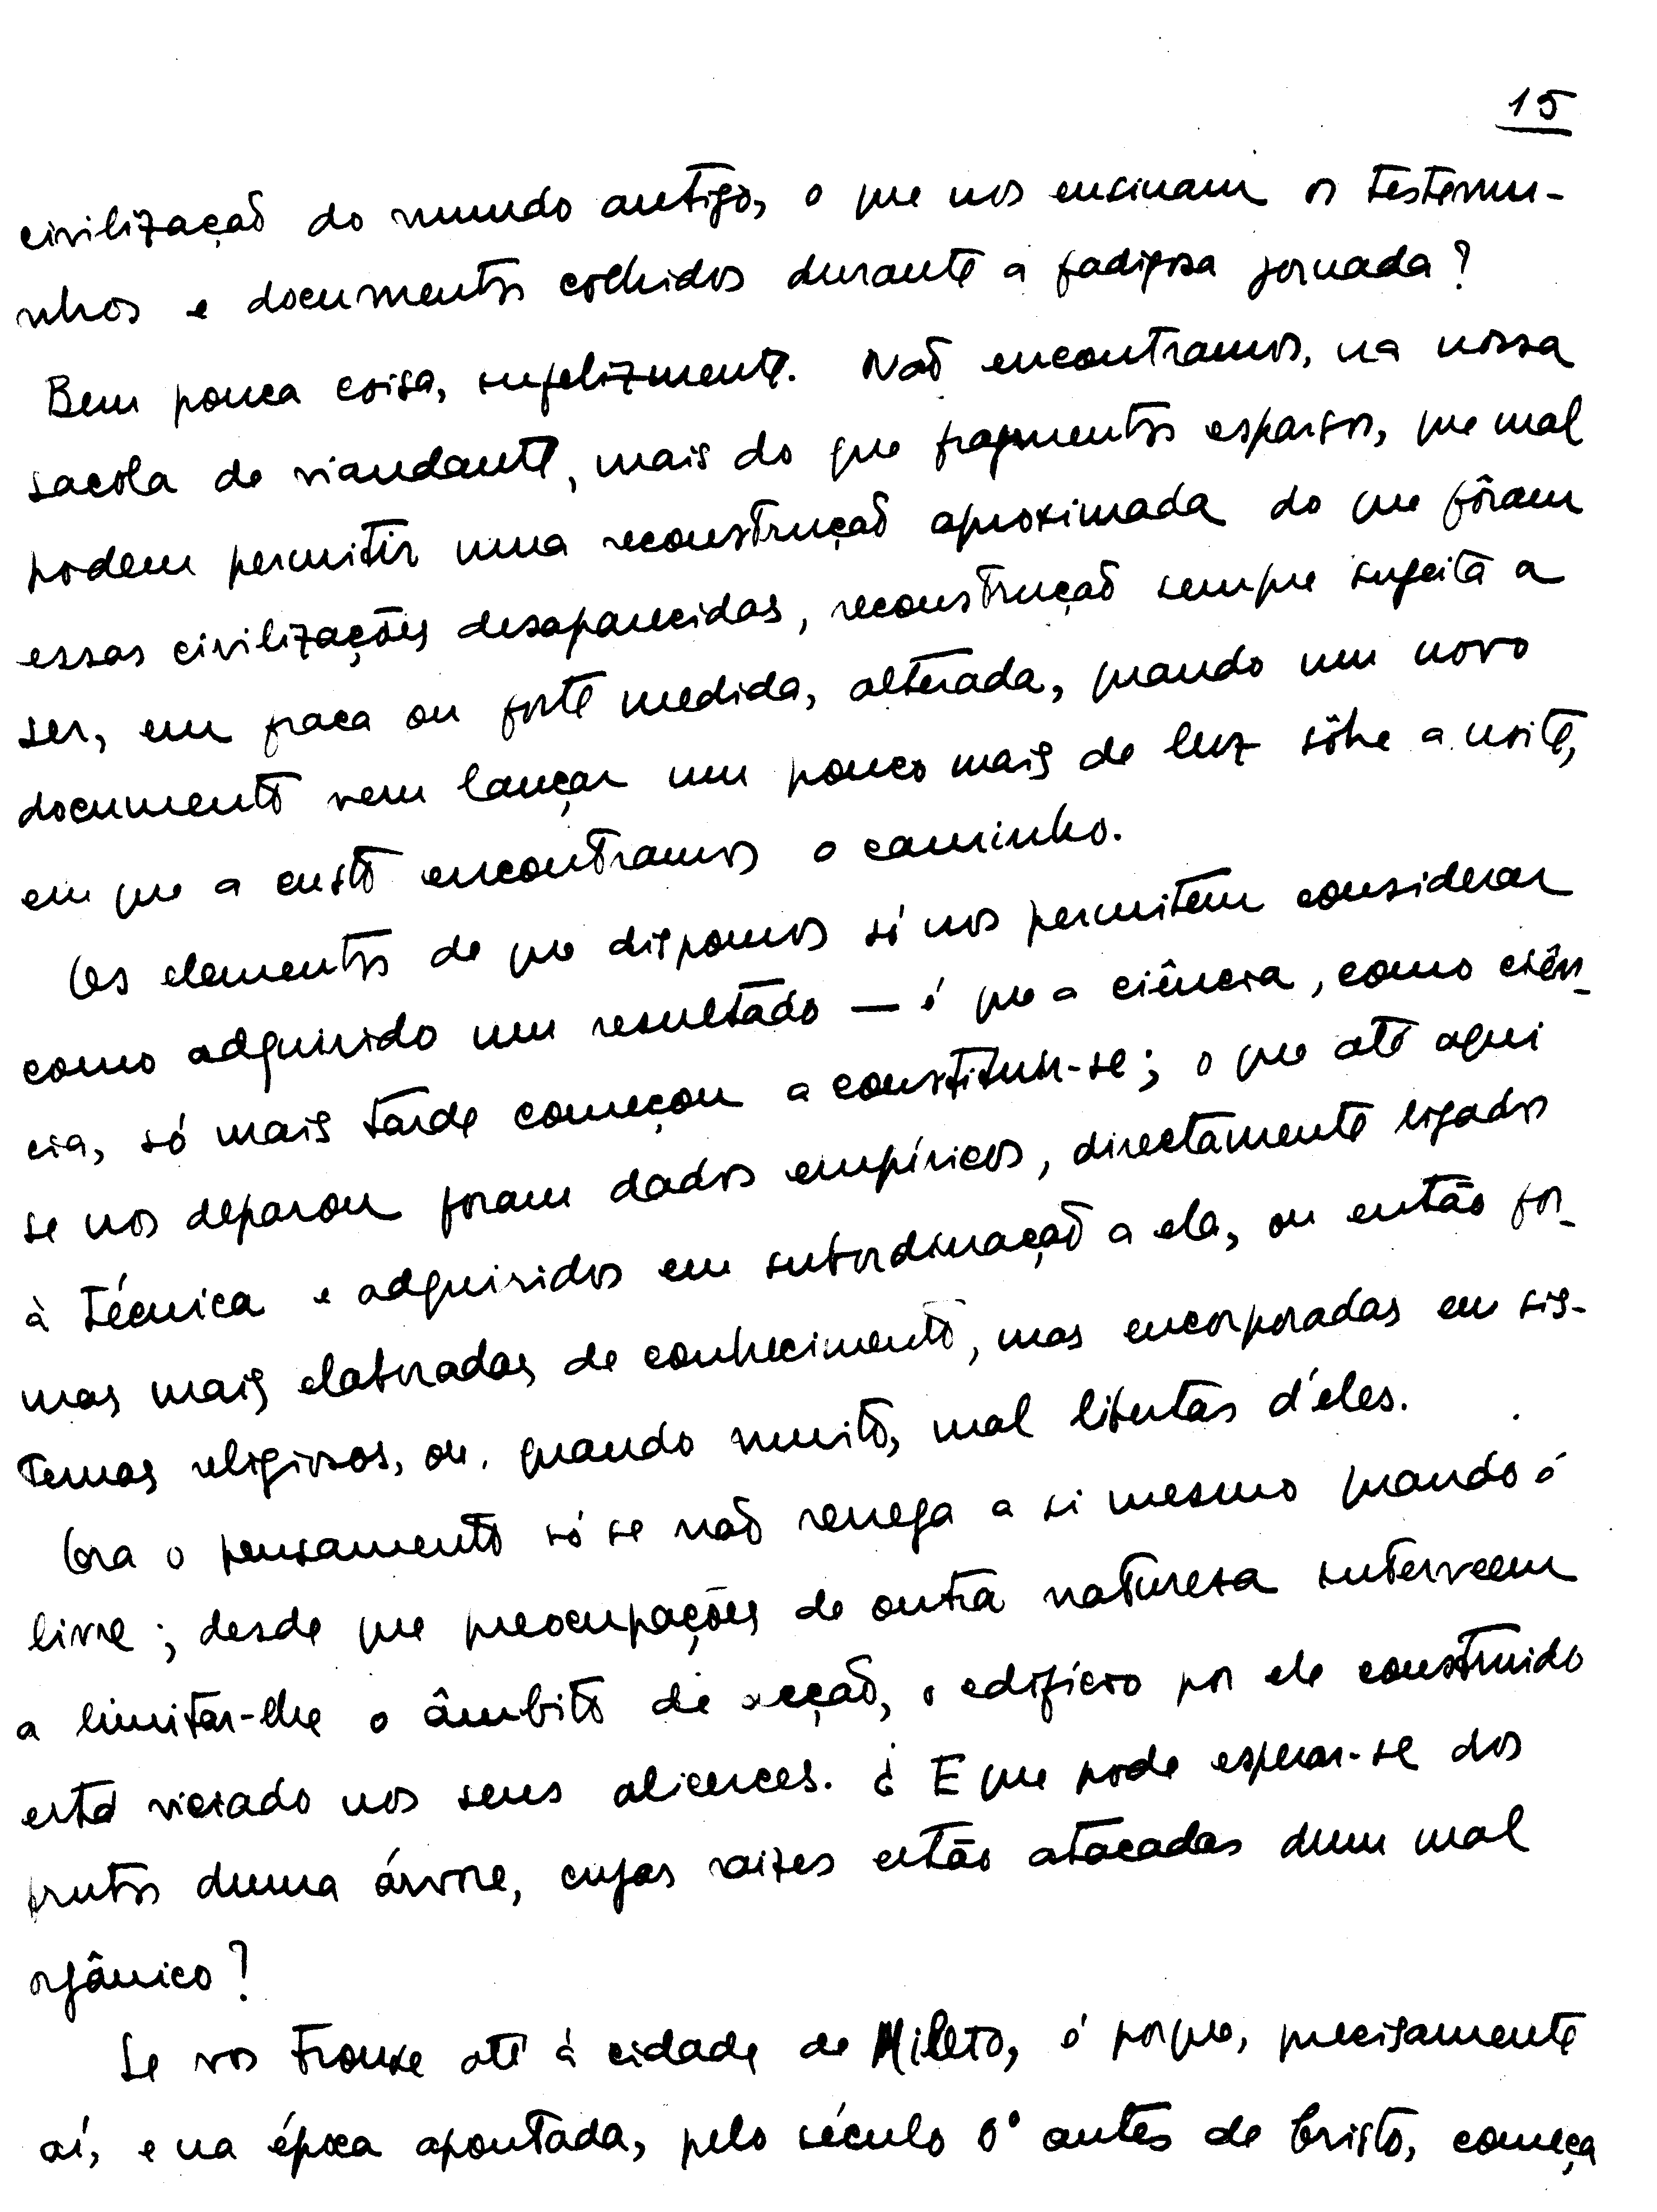 15
civilização do mundo antigo, o que nos ensinam os testemu-
nhos e documentos colhidos durante a fadigosa jornada?
Bem pouca coisa, infelizmente. Não encontramos, na nossa
sacola de viandante, mais do que fragmentos esparsos, que mal
podem permitir uma reconstrução aproximada do que fôram
essas civilizações desaparecidas, reconstrução sempre sujeita a
ser, em fraca ou forte medida, alterada, quando um novo
documento vem lançar um pouco mais de luz sôbre a noite,
em que a custo encontramos o caminho.
Os elementos de que dispomos só nos permitem considerar
como adquirido um resultado — é que a ciência, como ciên-
cia, só mais tarde começou a constituir-se; o que até aqui
se nos deparou foram dados empíricos, directamente ligados
à técnica e adquiridos em subordinação a ela, ou então for-
mas mais elaboradas de conhecimento, mas encorporadas em sis-
temas religiosos, ou, quando muito, mal libertas d'eles.
Ora o pensamento só se não renega a si mesmo quando é
livre; desde que preocupações de outra naturesa interveem
a limitar-lhe o âmbito de acção, o edifício por ele construido
está viciado nos seus alicerces. ¿ E que pode esperar-se dos
frutos duma árvore, cujas raizes estão atacadas dum mal
orgânico?
Se vos trouxe até à cidade de Mileto, é porque, precisamente
aí, e na época apontada, pelo século 6º antes de Cristo, começa